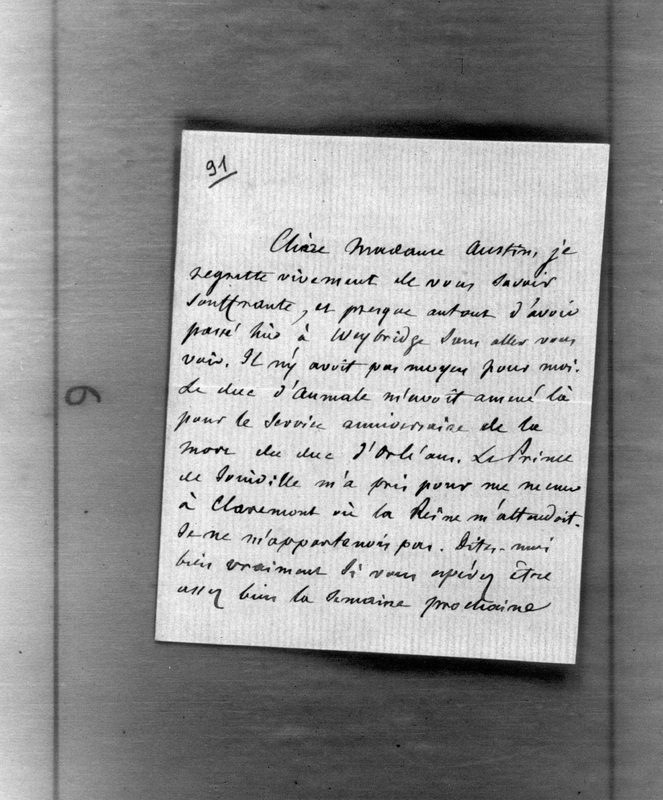 91
Chère Madame Austin, je
regrette vivement de vous savoir
souffrante, et presque autant d'avoir
passé hier à Weybridge sans aller vous
voir. Il n'y avoit pas moyen pour moi.
Le duc d'Aumale m'avoit amené là
pour le service anniversaire de la
mort du duc d'Orléans. Le Prince
de Joinville m'a pris pour me mener
à Claremont où la Reine m'attendoit.
Je ne m'appartenois pas. Dites-moi
bien vraiment si vous espérez être
assez bien la semaine prochaine
6